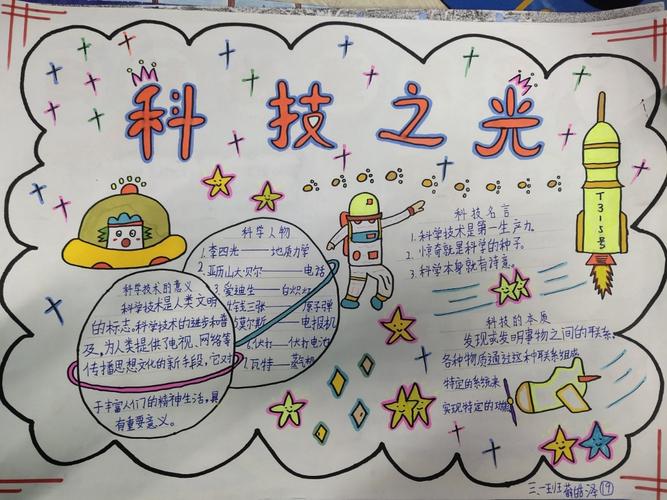 科技之光
科学人物
1.李四光——地质力学
2.亚历山大·贝尔——电话
3.爱迪生——白炽灯
钱三强——原子弹
莫尔斯——电报机
6.伏打——伏打电池
7.瓦特——蒸气机
科学技术的意义
科学技术是人类文明
的标志。科学技术的进步和普
及,为人类提供了电视、网络等
传播思想文化的新手段,它对
于丰富人们的精神生活,具
有重要意义。
科技名言
1.科学技术是第一生产力。
2.惊奇就是科学的种子。
3.科学本身就有诗意。
T315号
科技的本质
发现或发明事物之间的联系,
各种物质通过这种联系组成
特定的系统来
实现特定的功能
三、一班
⑲